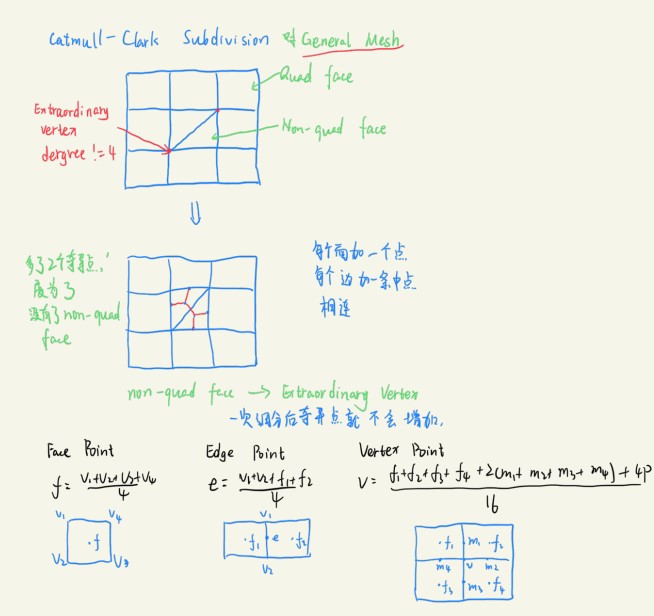 Catmull-Clark Subdivision 对 General Mesh
Quad face
Extraordinary
vertex
dergree != 4
Non-quad face
多了2个奇异点,
度为3
没有了non-quad
face
每个面加一个点
每个边加一条中点
相连
non-quad face → Extraordinary Vertex
一次细分后奇异点就不会增加.
Face Point
f = v₁+v₂+v₃+v₄ / 4
v₁ v₄
·f
v₂ v₃
Edge Point
e = v₁+v₂+f₁+f₂ / 4
v₁
·f₁ e ·f₂
v₂
Vertex Point
v = f₁+f₂+f₃+f₄+2(m₁+m₂+m₃+m₄)+4p / 16
·f₁ m₁ ·f₂
m₄ v m₂
·f₃ m₃ ·f₄